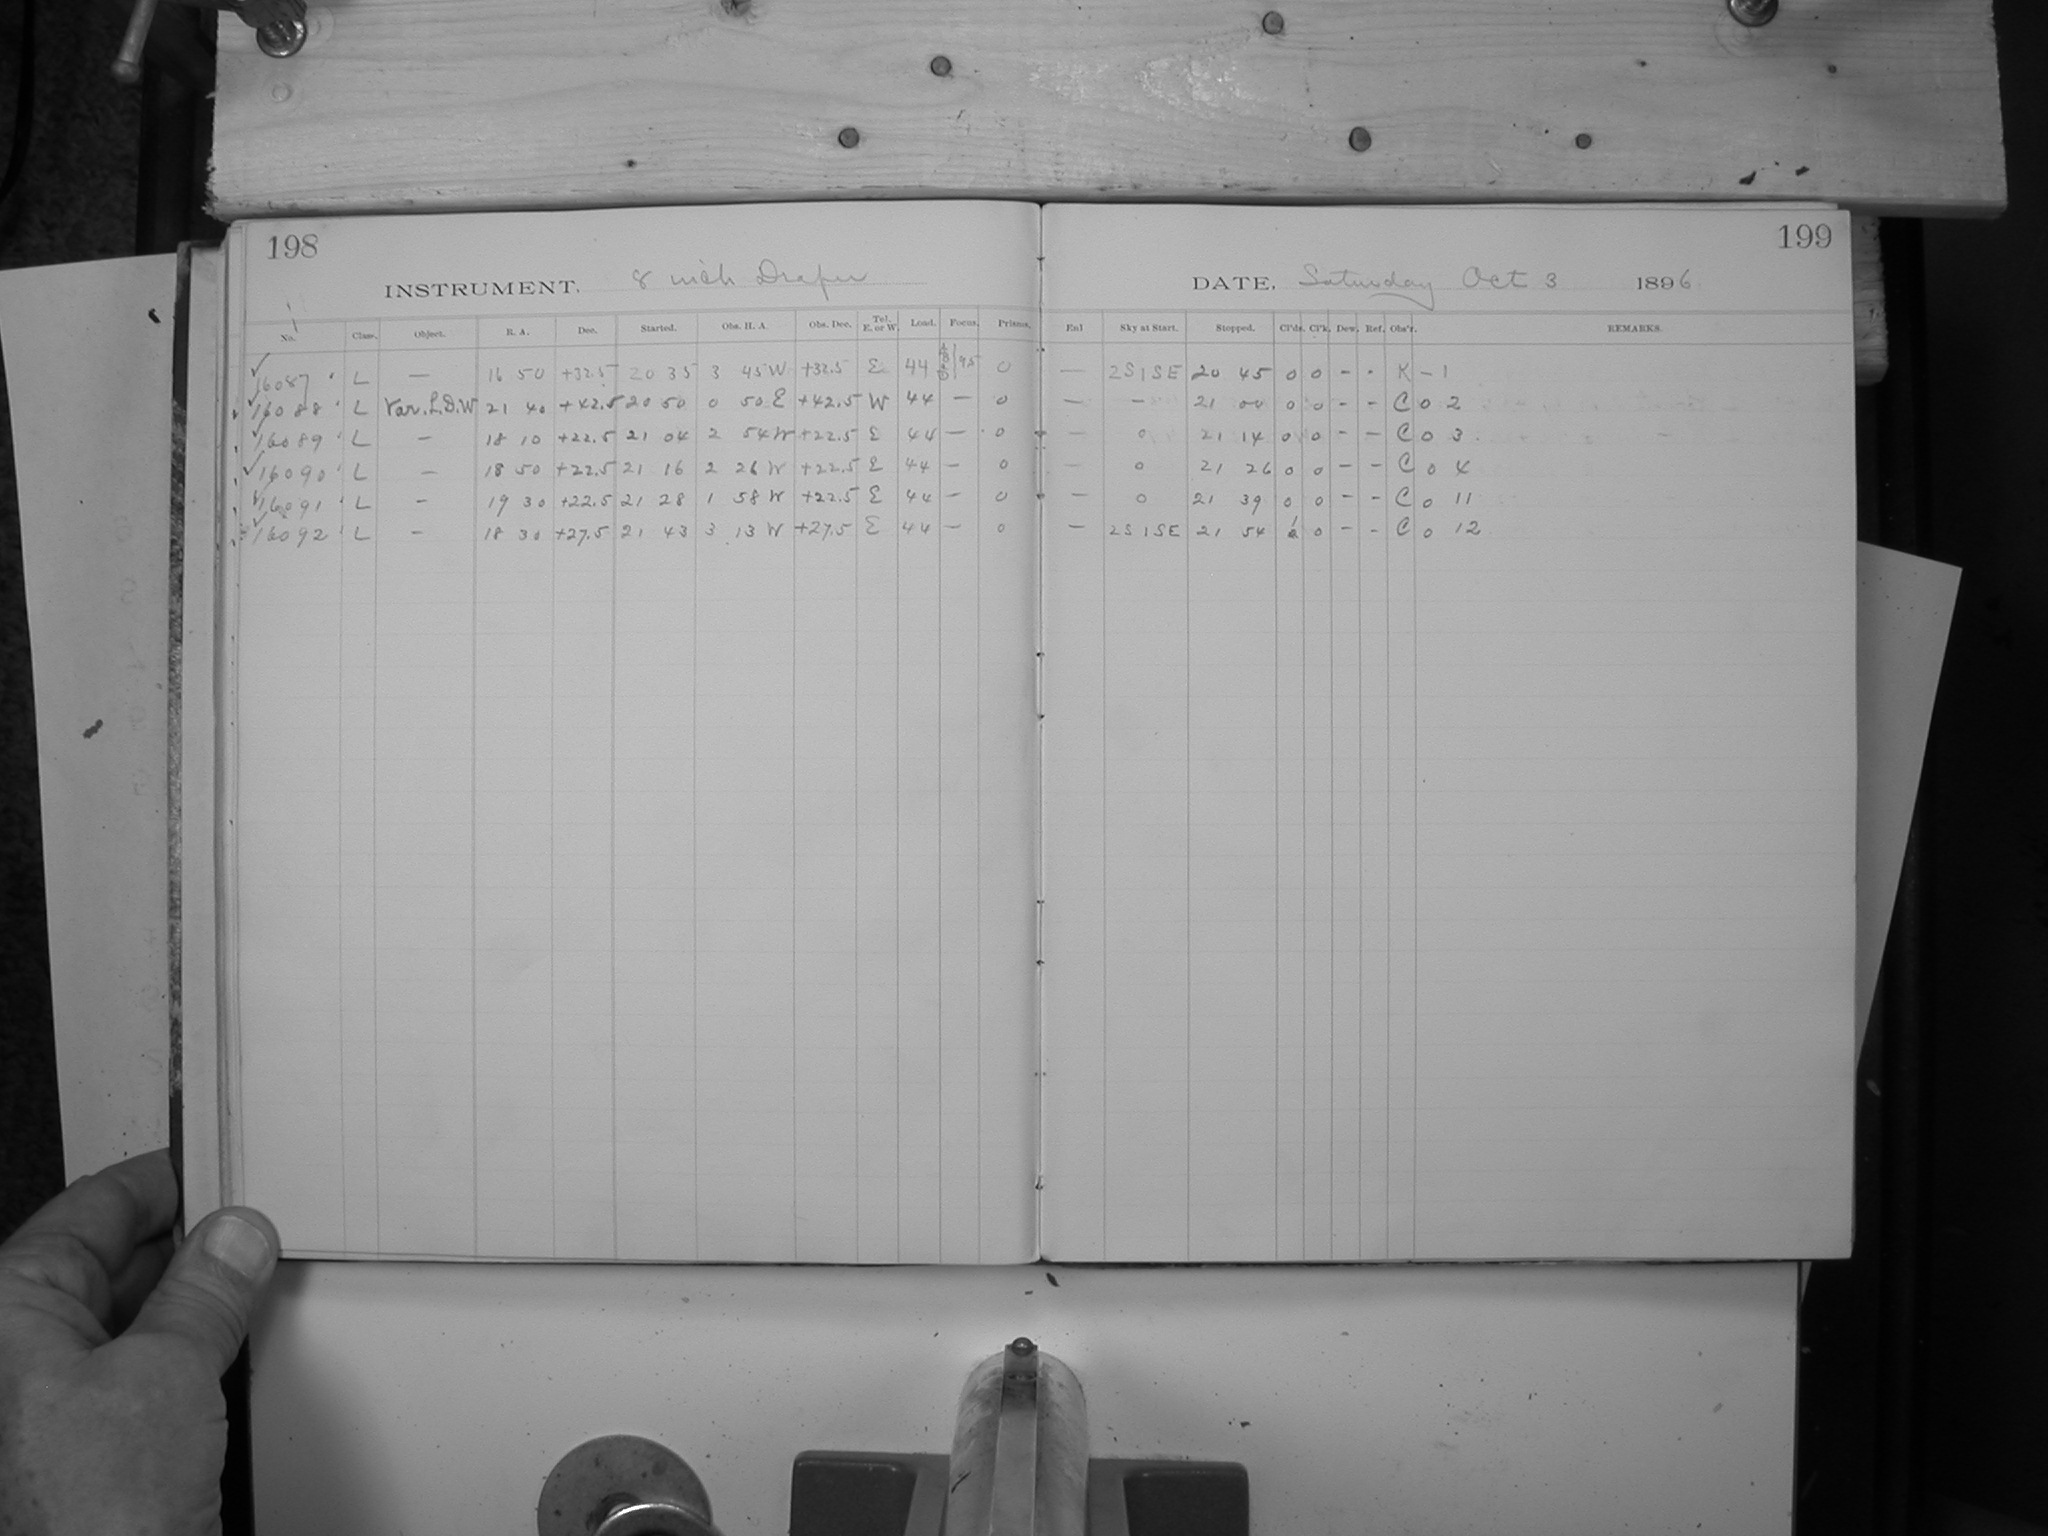 198
INSTRUMENT. 8 inch Draper
No. Class. Object. R. A. Dec. Started. Obs. H. A. Obs. Dec. Tel. E. or W. Load. Focus. Prisms.
16087 L — 16 50 +32.5 20 35 3 45 W +32.5 E 44 95 0
16088 L Var. L.D.W 21 40 +42.5 20 50 0 50 E +42.5 W 44 — 0
16089 L — 18 10 +22.5 21 04 2 54 W +22.5 E 44 — 0
16090 L — 18 50 +22.5 21 16 2 26 W +22.5 E 44 — 0
16091 L — 19 30 +22.5 21 28 1 58 W +22.5 E 44 — 0
16092 L — 18 30 +27.5 21 43 3 13 W +27.5 E 44 — 0
199
DATE. Saturday Oct 3 1896
Enl Sky at Start. Stopped. Cl'ds. Cl'k. Dew. Ref. Obs'r. REMARKS.
— 2S1SE 20 45 0 0 - - K - 1
— — 21 00 0 0 - - C 0 2
— 0 21 14 0 0 - - C 0 3
— 0 21 26 0 0 - - C 0 4
— 0 21 39 0 0 - - C 0 11
— 2S1SE 21 54 0 - - C 0 12